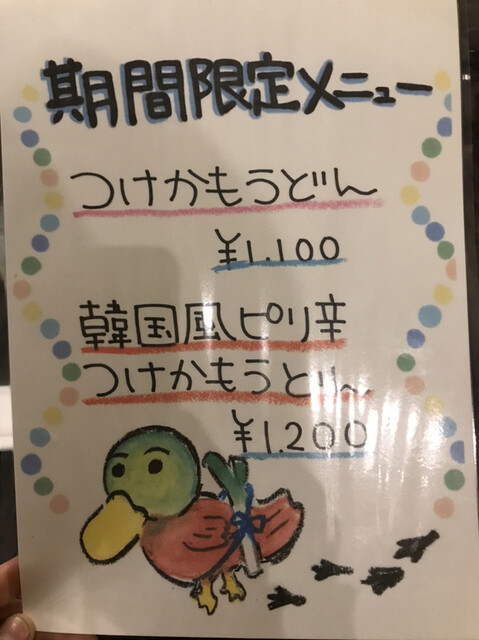 期間限定メニュー
つけかもうどん
¥1.100
韓国風ピリ辛
つけかもうどん
¥1.200